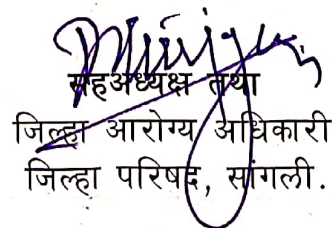 सहअध्यक्ष तथा
जिल्हा आरोग्य अधिकारी
जिल्हा परिषद, सांगली.